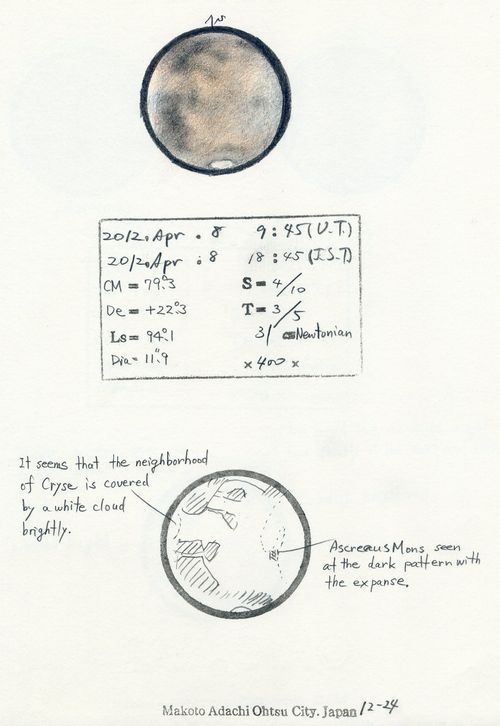 2012. Apr . 8 9 : 45 (U.T.)
2012. Apr . 8 18 : 45 (J.S.T)
CM = 79.°3 S = 4/10
De = +22.°3 T = 3/5
Ls = 94.°1 31 cm Newtonian
Dia = 11."9 × 400 ×
It seems that the neighborhood
of Cryse is covered
by a white cloud
brightly.
Ascreaus Mons seen
at the dark pattern with
the expanse.
Makoto Adachi Ohtsu City. Japan 12-24